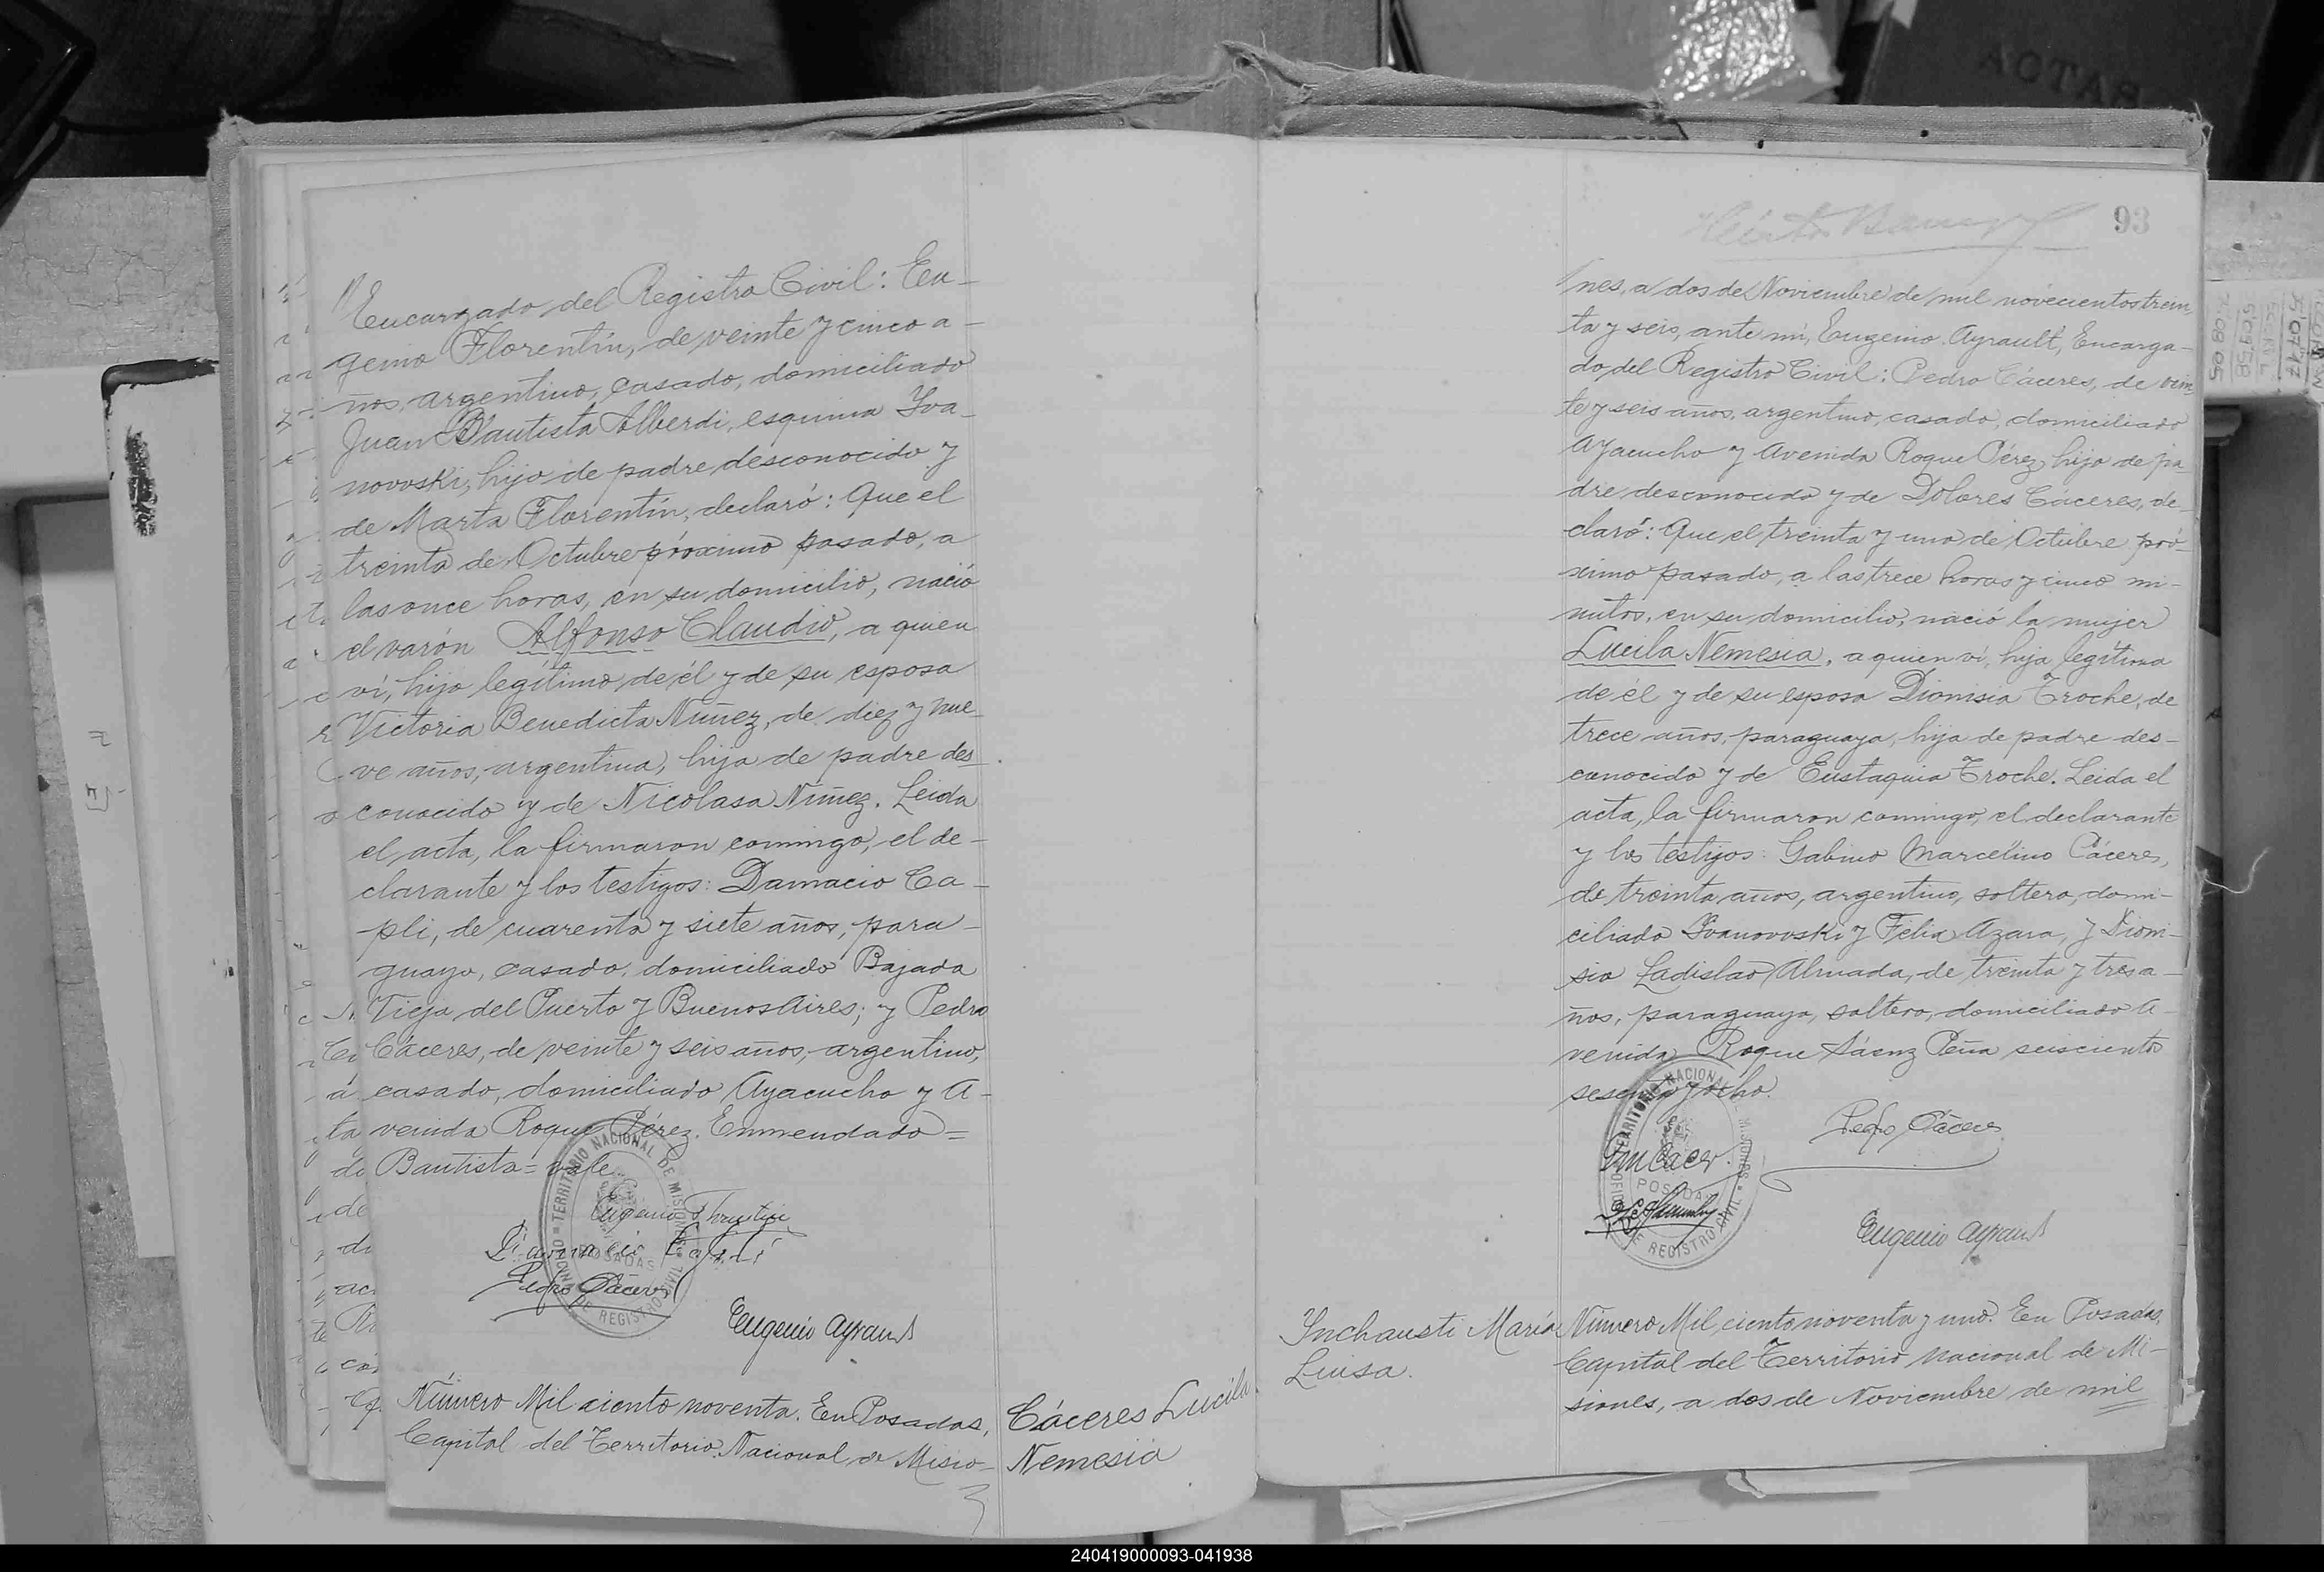 Encargado del Registro Civil: Eu-
genio Florentín, de veinte y cinco a-
ños, argentino, casado, domiciliado
Juan Bautista Alberdi, esquina Iva-
novoski, hijo de padre desconocido y
de Marta Florentín, declaró: Que el
treinta de Octubre próximo pasado, a
las once horas, en su domicilio, nació
el varón Alfonso Claudio, a quien
ví, hijo legítimo de él y de su esposa
Victoria Benedicta Nuñez, de diez y nue-
ve años, argentina, hija de padre des-
conocido y de Nicolasa Nuñez. Leida
el acta, la firmaron conmigo, el de-
clarante y los testigos: Damacio Ca-
pli, de cuarenta y siete años, para-
guayo, casado, domiciliado Bajada
Vieja del Puerto y Buenos Aires; y Pedro
Cáceres, de veinte y seis años, argentino,
casado, domiciliado Ayacucho y A-
venida Roque Pérez. Enmendado=
Bautista=vale.
Eugenio Florentin
Damacio Capli
Pedro Cáceres
Eugenio Ayrault
OFICINA DE REGISTRO CIVIL
TERRITORIO NACIONAL DE MISIONES
POSADAS
Cáceres Lucila
Nemesia
Número Mil ciento noventa. En Posadas,
Capital del Territorio Nacional de Misio-
93
nes, a dos de Noviembre de mil novecientos trein
ta y seis, ante mí, Eugenio Ayrault, Encarga-
do del Registro Civil: Pedro Cáceres, de vein
te y seis años, argentino, casado, domiciliado
Ayacucho y Avenida Roque Pérez, hijo de pa
dre desconocido y de Dolores Cáceres, de-
claró: Que el treinta y uno de Octubre pró-
ximo pasado, a las trece horas y cinco mi-
nutos, en su domicilio, nació la mujer
Lucila Nemesia, a quien ví, hija legítima
de él y de su esposa Dionisia Troche, de
trece años, paraguaya, hija de padre des-
conocido y de Eustaquia Troche. Leida el
acta, la firmaron conmigo, el declarante
y los testigos: Gabino Marcelino Cáceres,
de treinta años, argentino, soltero, domi-
ciliado Ivanovoski y Felix Azara, y Dioni-
sio Ladislao Almada, de treinta y tres a-
ños, paraguayo, soltero, domiciliado A-
venida Roque Sáenz Peña seiscientos
sesenta y ocho.
Pedro Cáceres
Eugenio Ayrault
OFICINA DE REGISTRO CIVIL
TERRITORIO NACIONAL DE MISIONES
POSADAS
Inchausti María
Luisa.
Número Mil ciento noventa y uno. En Posadas,
Capital del Territorio Nacional de Mi-
siones, a dos de Noviembre de mil
240419000093-041938